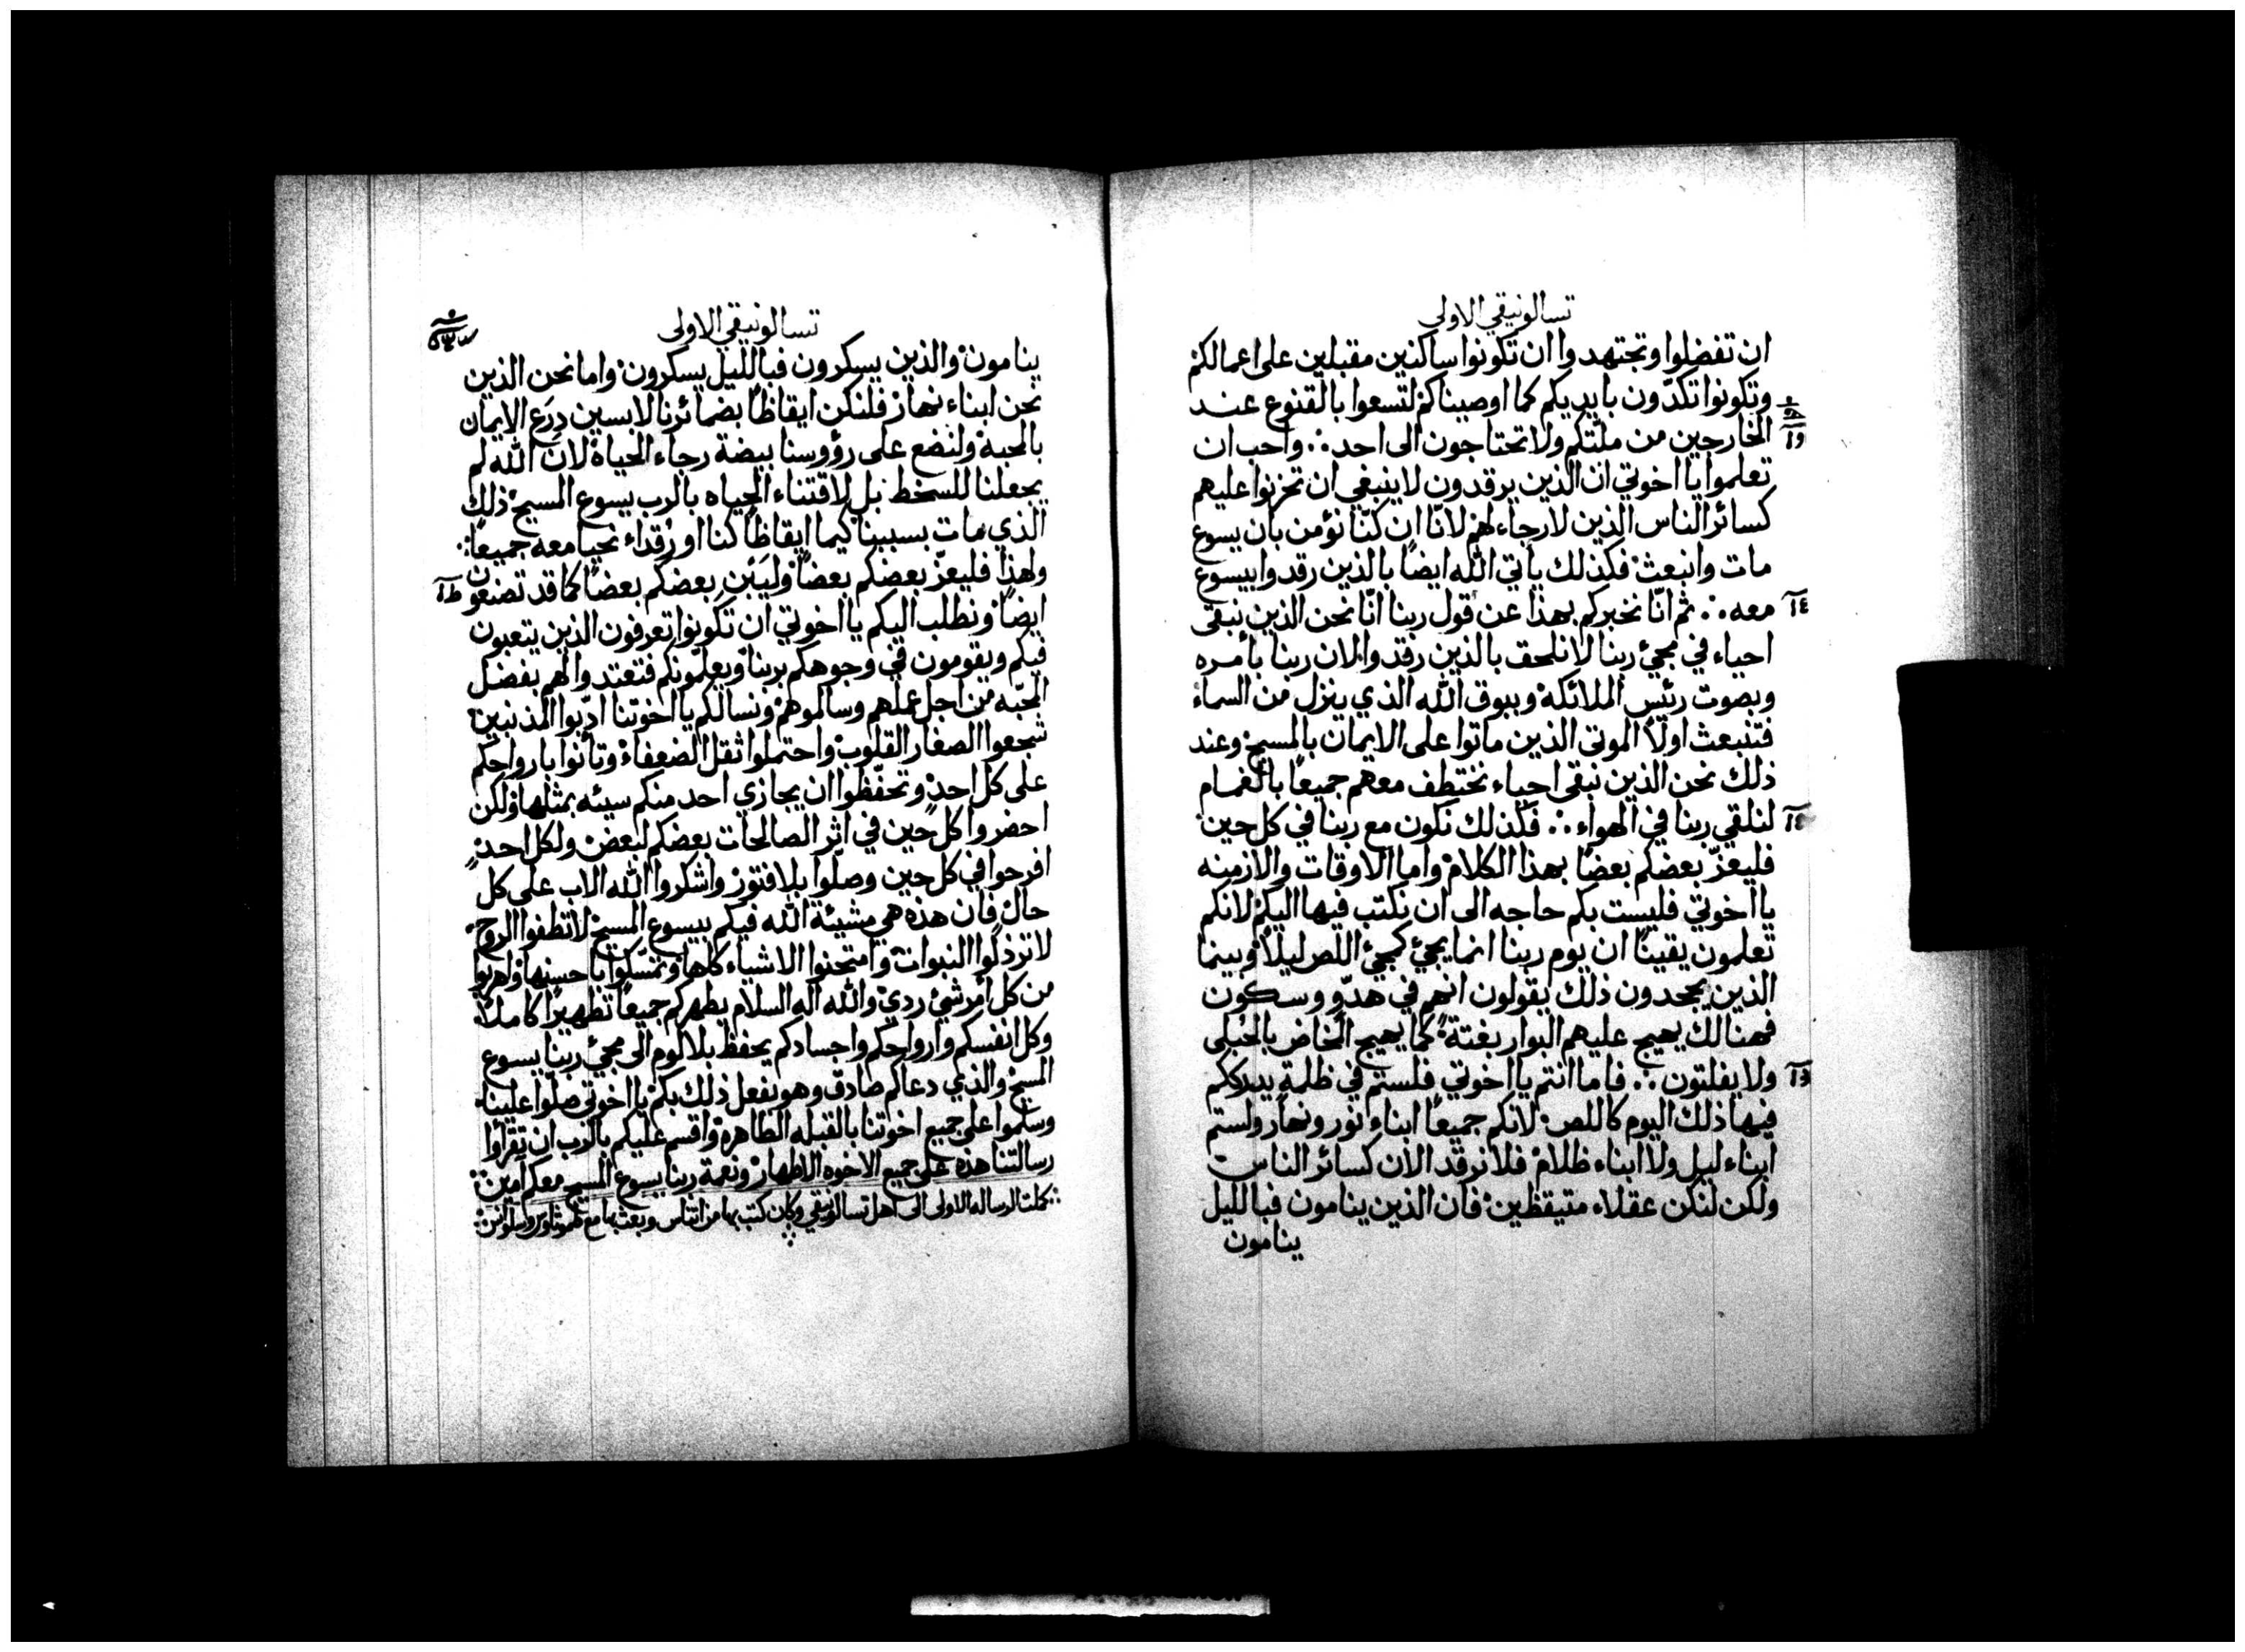 تسالونيقي الاولى
ان تفضلوا وتجتهدوا ان تكونوا ساكنين مقبلين على اعمالكم
وتكونوا تكدّون بايديكم كما اوصيناكم لتسعوا بالقنوع عند
الخارجين من ملّتكم ولا تحتاجون الى احد ∴ واحب ان
تعلموا يا اخوتي ان الذين يرقدون لا ينبغي ان تحزنوا عليهم
كسائر الناس الذين لا رجاء لهم لانّا ان كنّا نؤمن بان يسوع
مات وانبعث فكذلك يأتي الله ايضًا بالذين رقدوا بيسوع
معه ∴ ثم انّا نخبركم بهذا عن قول ربنا انّا نحن الذين نبقى
احياء في مجيئ ربنا لا نلحق بالذين رقدوا لان ربنا بأمره
وبصوت رئيس الملائكة وببوق الله الذي ينزل من السماء
فتنبعث اولًا الموتى الذين ماتوا على الايمان بالمسيح وعند
ذلك نحن الذين نبقى احياء نختطف معهم جميعًا بالغمام
لنلقي ربنا في الهواء ∴ فكذلك نكون مع ربنا في كل حين
فليعزّ بعضكم بعضًا بهذا الكلام واما الاوقات والازمنه
يا اخوتي فليست بكم حاجه الى ان نكتب فيها اليكم لانكم
تعلمون يقينًا ان يوم ربنا انما يجيئ كمجيئ اللص ليلًا وبينما
الذين يجحدون ذلك يقولون انهم في هدّو وسكون
فهنالك يهيج عليهم البوار بغتةً كما يهيج المخاض بالحبلى
ولا يفلتون ∴ فاما انتم يا اخوتي فلستم في ظلمة يدرككم
فيها ذلك اليوم كاللص لانكم جميعًا ابناء نور ونهار ولستم
ابناء ليل ولا ابناء ظلام فلا نرقد الان كسائر الناس
ولكن لنكن عقلاء متيقظين فان الذين ينامون فبالليل
ينامون
تسالونيقي الاولى
ينامون والذين يسكرون فبالليل يسكرون واما نحن الذين
نحن ابناء نهار فلنكن ايقاظًا بضمائرنا لابسين درع الايمان
بالمحبة ولنضع على رؤوسنا بيضة رجاء الحياة لان الله لم
يجعلنا للسخط بل لاقتناء الحياه بالرب يسوع المسيح ذلك
الذي مات بسببنا كيما ايقاظًا كنا او رقداء نحيا معه جميعًا
ولهذا فليعزّ بعضكم بعضًا وليَبْنِ بعضكم بعضًا كما قد تصنعون
ايضًا ونطلب اليكم يا اخوتي ان تكونوا تعرفون الذين يتعبون
فيكم ويقومون في وجوهكم بربنا ويعلمونكم فتعتدوا لهم بفضل
المحبّه من اجل عملهم وسالموهم ونسالكم يا اخوتنا ادّبوا المذنبين
شجعوا الصغار القلوب واحتملوا ثقل الضعفاء وتأنوا بارواحكم
على كل احد وتحفّظوا ان يجازي احد منكم سيئه بمثلها ولكن
احضروا كل حين في اثر الصالحات بعضكم لبعض ولكل احد
افرحوا في كل حين وصلّوا بلا فتور واشكروا الله الاب على كل
حال فان هذه هي مشيئة الله فيكم بيسوع المسيح لا تطفوا الروح
لا ترذلوا النبوات وامتحنوا الاشياء كلها وتمسّكوا باحسنها واهربوا
من كل امر شئ ردي والله اله السلام يطهركم جميعًا تطهيرًا كاملًا
وكل انفسكم وارواحكم واجسادكم يحفظ بلا لوم الى مجيئ ربنا يسوع
المسيح والذي دعاكم صادق وهو يفعل ذلك بكم يا اخوتي صلّوا علينا
وسلموا على جميع اخوتنا بالقبله الطاهرة واقسم عليكم بالرب ان تقرأوا
رسالتنا هذه على جميع الاخوه الاطهار ونعمة ربنا يسوع المسيح معكم امين
كملت الرساله الاولى الى اهل تسالونيقي وكان كتب بها من اثناس وبعث بها مع طيموثاوس وسلوانس